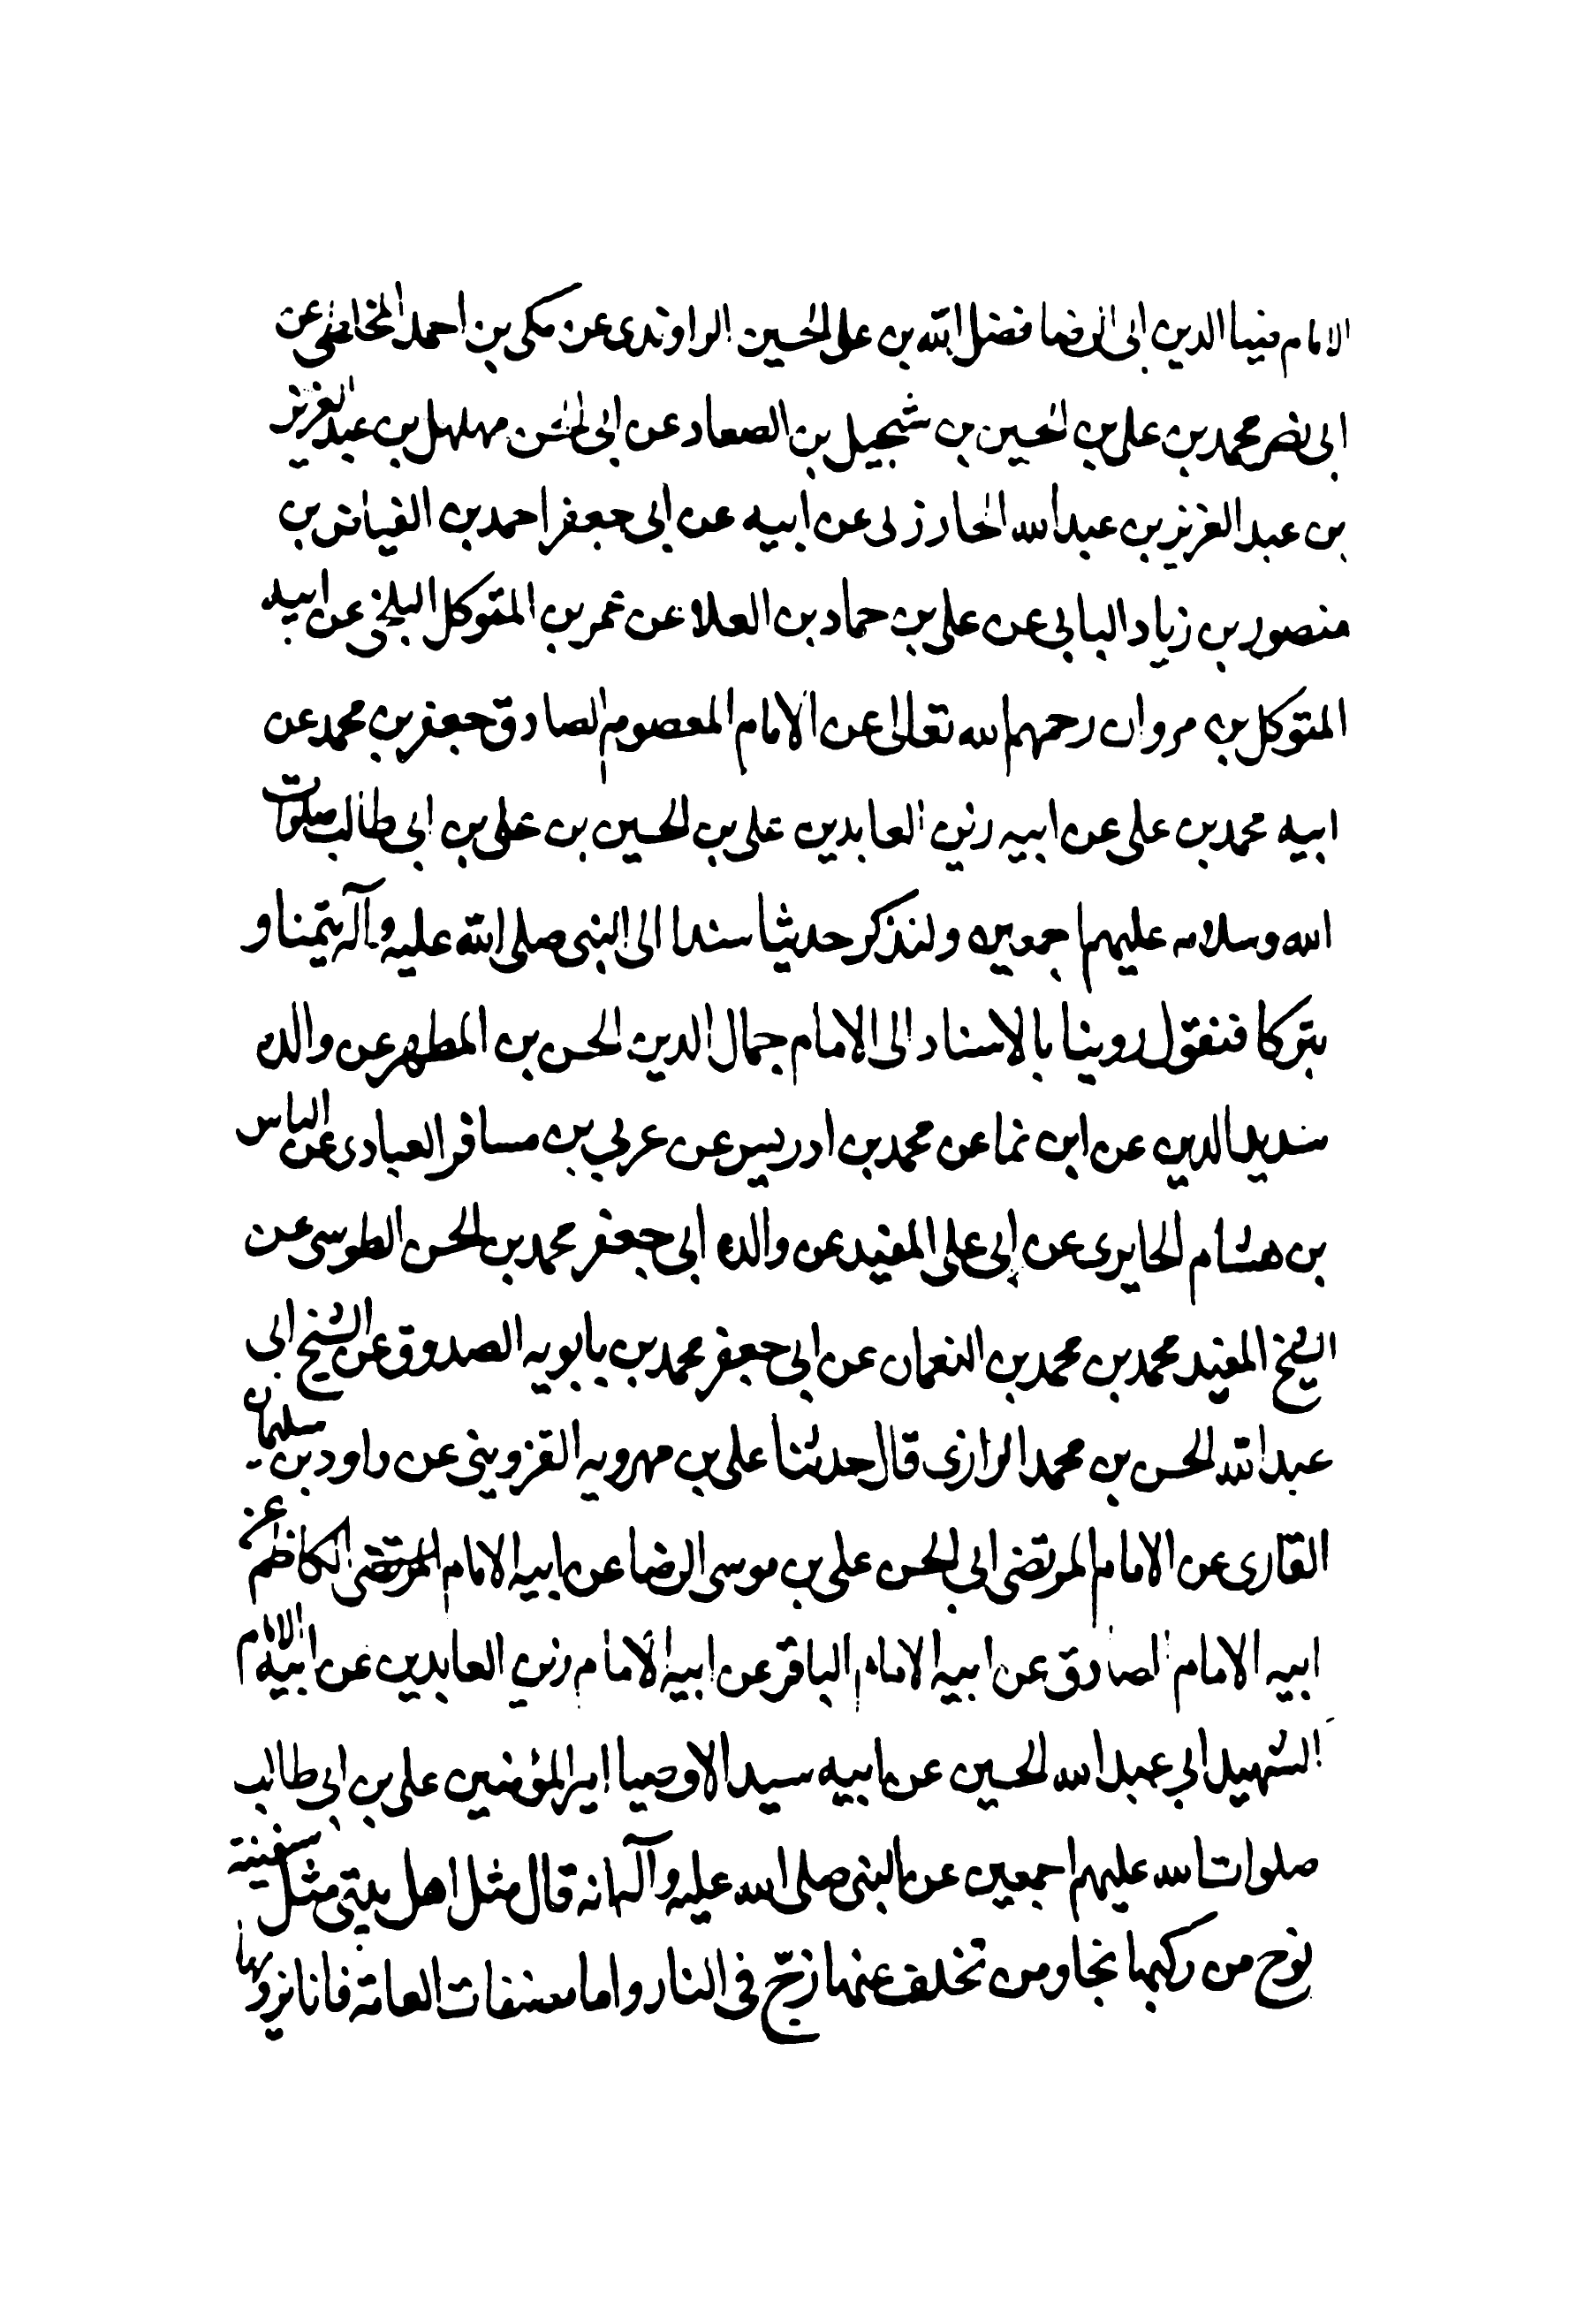 الامام ضيا الدين ابى الرضا فضل الله بن على الحسين الراوندى عن مكى بن احمد المخلطى عن
ابى نصر محمد بن على بن الحسين بن شجيل بن الصعاد عن ابى الحسن مهلهل بن عبد العزيز
بن عبد العزيز بن عبد الله الحارزلى عن ابيه عن ابى جعفر احمد بن الفياض بن
منصور بن زياد البابى عن على بن حماد بن العلا عن عمر بن المتوكل البلخى عن ابيه
المتوكل بن مروان رحمهم الله تعالى عن الامام المعصوم الصادق جعفر بن محمد عن
ابيه محمد بن على عن ابيه زين العابدين على بن الحسين بن على بن ابى طالب صلوات
الله وسلامه عليهم اجمعين ولنذكر حديثا سندا الى النبى صلى الله عليه وآله تيمنا و
تبركا فنقول روينا بالاسناد الى الامام جمال الدين الحسن بن المطهر عن والده
سديد الدين عن ابن نما عن محمد بن ادريس عن عربي بن مسافر العبادى عن الياس
بن هشام الحايرى عن ابى على المفيد عن والده ابى جعفر محمد بن الحسن الطوسى عن
الشيخ المفيد محمد بن محمد بن النعمان عن ابى جعفر محمد بن بابويه الصدوق عن الشيخ ابى
عبد الله الحسن بن محمد الرازى قال حدثنا على بن مهرويه القزوينى عن داود بن سليمان
القارى عن الامام المرتضى ابى الحسن على بن موسى الرضا عن ابيه الامام الكاظم عن
ابيه الامام الصادق عن ابيه الامام الباقر عن ابيه الامام زين العابدين عن ابيه الامام
الشهيد ابى عبد الله الحسين عن ابيه سيد الاوصيا امير المؤمنين على بن ابى طالب
صلوات الله عليهم اجمعين عن النبى صلى الله عليه وآله انه قال مثل اهل بيتى مثل سفينة
نوح من ركبها نجا ومن تخلف عنها زج فى النار واما مصنفات العامة فانا نرويها